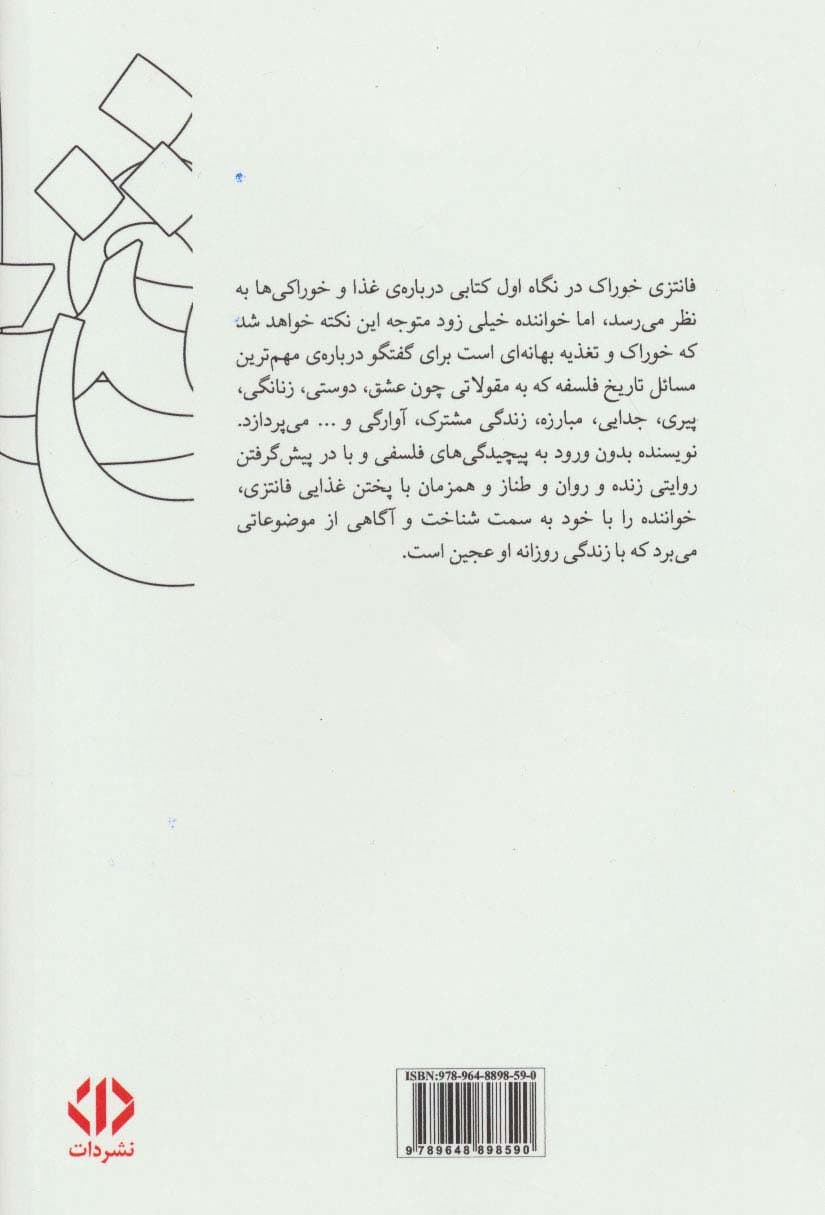 فانتزی خوراک در نگاه اول کتابی درباره‌ی غذا و خوراکی‌ها به
نظر می‌رسد، اما خواننده خیلی زود متوجه این نکته خواهد شد
که خوراک و تغذیه بهانه‌ای است برای گفتگو درباره‌ی مهم‌ترین
مسائل تاریخ فلسفه که به مقولاتی چون عشق، دوستی، زنانگی،
پیری، جدایی، مبارزه، زندگی مشترک، آوارگی و ... می‌پردازد.
نویسنده بدون ورود به پیچیدگی‌های فلسفی و با در پیش‌گرفتن
روایتی زنده و روان و طناز و همزمان با پختن غذایی فانتزی،
خواننده را با خود به سمت شناخت و آگاهی از موضوعاتی
می‌برد که با زندگی روزانه او عجین است.
ISBN:978-964-8898-59-0
9 789648 898590
نشردات